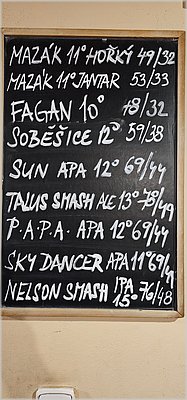 MAZÁK 11° HOŘKÝ 49/32
MAZÁK 11° JANTAR 53/33
FAGAN 10° 48/32
SOBĚŠICE 12° 59/38
SUN APA 12° 69/44
TALUS SMASH ALE 13° 78/49
P.A.P.A. APA 12° 69/44
SKY DANCER APA 11° 69/44
NELSON SMASH IPA 15° 76/48